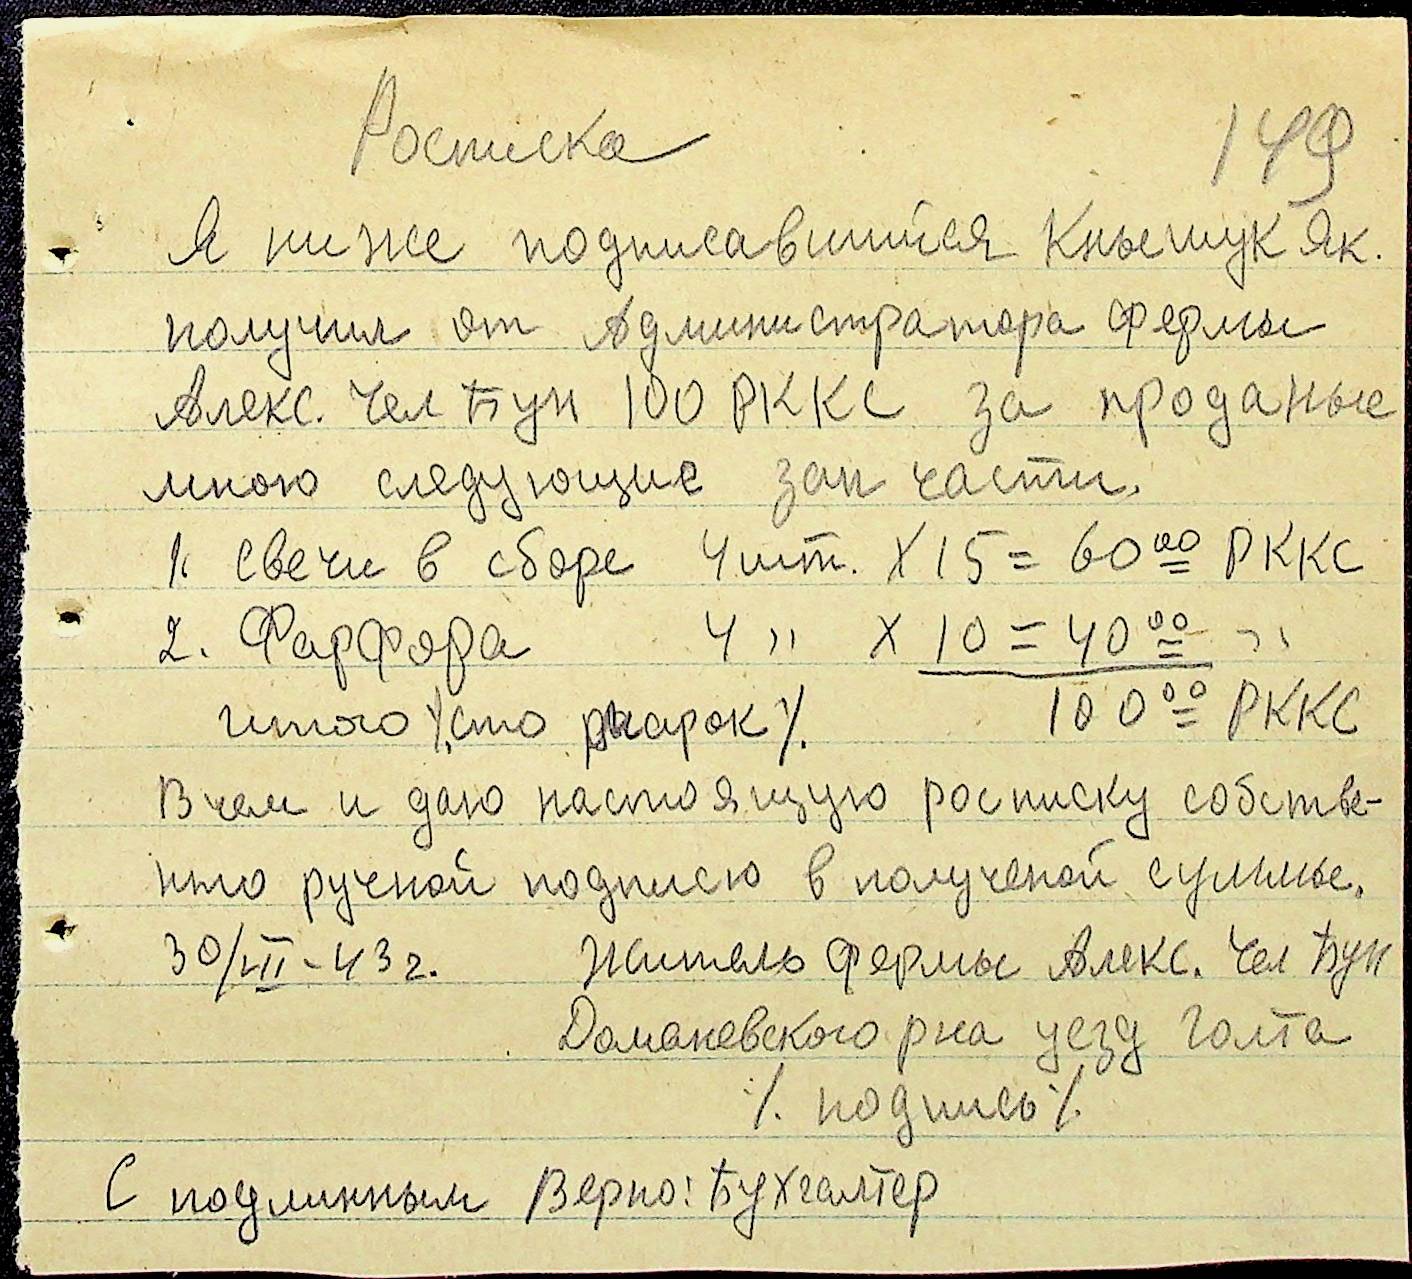 Росписка
149
Я ниже подписавшийся Кнышук Як.
получил от Администратора фермы
Алекс. чел Бун 100 РККС за проданые
мною следующие зап части.
1. Свечи в сборе 4 шт. X 15 = 60 00 РККС
2. Фарфора 4 " X 10 = 40 00 "
итого /.сто марок/. 100 00 РККС
В чем и даю настоящую росписку собстве-
нно ручной подписю в полученой суммы.
30/III - 43 г. Житель фермы Алекс. Чел Бун
Доманевского рна уезд Голта
/. подпись /.
С подлинным Верно: Бухгалтер